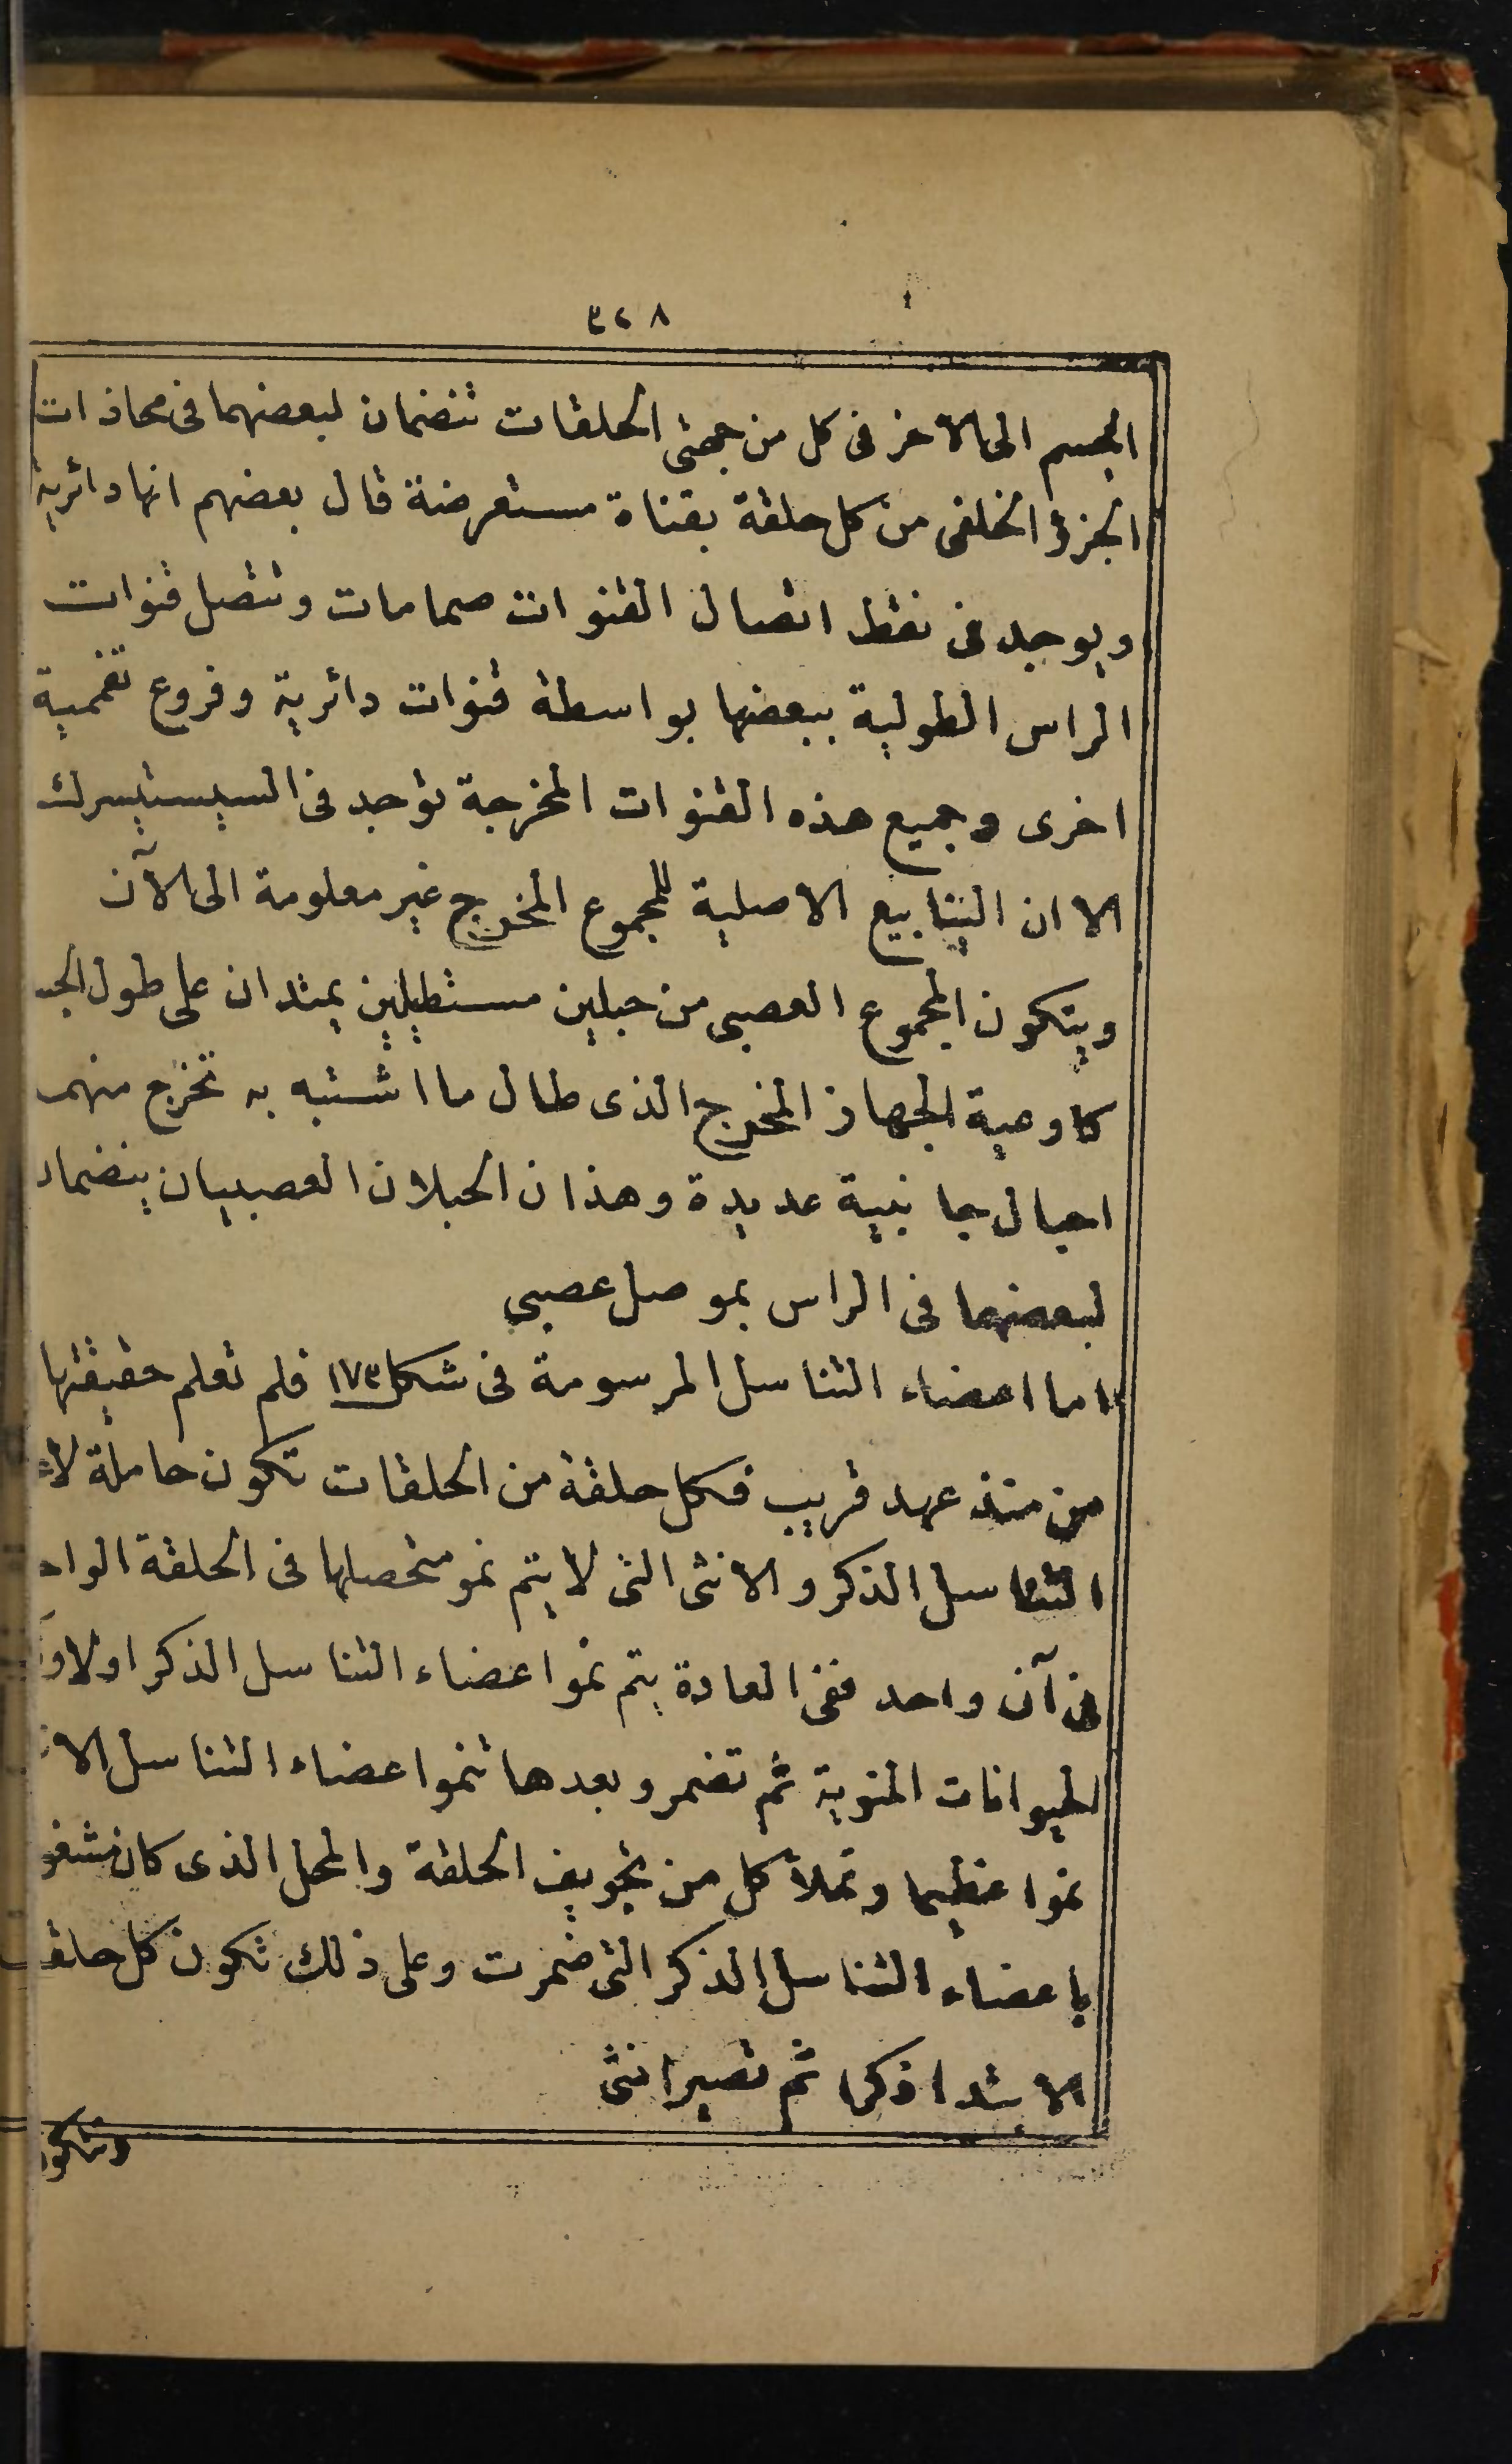 ٣٢٨
الجسم الى الاخر فى كل من جهتى الحلقات تنضمان لبعضهما فى محاذات
الجزؤ الخلفى من كل حلقة بقناة مستعرضة قال بعضهم انها دائرية
ويوجد فى نقط اتصال القنوات صمامات وتتصل قنوات
الراس الطولية ببعضها بواسطة قنوات دائرية وفروع تفممية
اخرى وجميع هذه القنوات المخرجة توجد فى السيستيسرك
الا ان الينابيع الاصلية للمجموع المخرج غير معلومة الى الآن
ويتكون المجموع العصبى من حبلين مستطيلين يمتدان على طول الجسـ
كاوعية الجهاز المخرج الذى طال ما اشتبه به تخرج منهمـ
احبال جانبية عديدة وهذان الحبلان العصبيان ينضمان
لبعضهما فى الراس بموصل عصبى
اما اعضاء التناسل المرسومة فى شكل ١٧٣ فلم تعلم حقيقتها
من منذ عهد قريب فكل حلقة من الحلقات تكون حاملة لا
التناسل الذكر والانثى التى لا يتم نمو متحصلها فى الحلقة الواحـ
فى آن واحد ففى العادة يتم نمو اعضاء التناسل الذكر اولا
الحيوانات المنوية ثم تضمر وبعدها تنمو اعضاء التناسل الا
نموا عظيما وتملأ كل من تجويف الحلقة والمحل الذى كان مشغو
باعضاء التناسل الذكر التى ضمرت وعلى ذلك تكون كل حلقـ
الابتدا ذكرا ثم تصير انثى
وتتكو